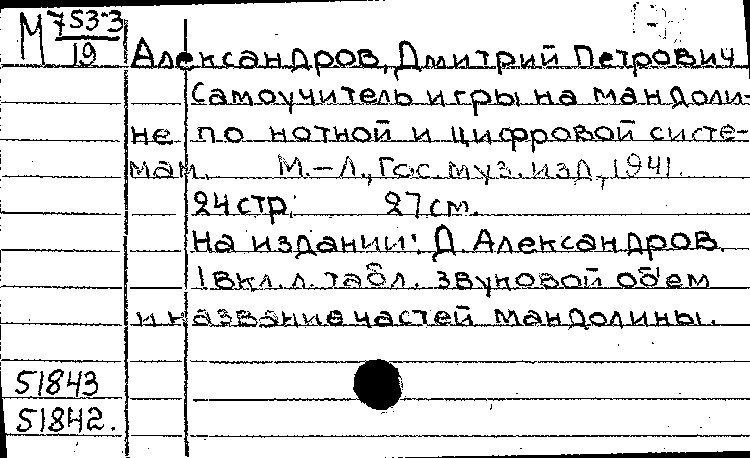 М 753-3
19
Александров, Дмитрий Петрович
Самоучитель игры на мандоли-
не по нотной и цифровой систе-
мам. М.-Л., Гос. муз. изд, 1941.
24 стр. 27 см.
На издании: Д. Александров.
1 вкл. л. табл. звуковой объем
и название частей мандолины.
51843
51842.